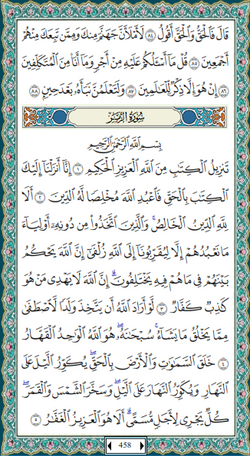 قَالَ فَٱلْحَقُّ وَٱلْحَقَّ أَقُولُ ٨٤ لَأَمْلَأَنَّ جَهَنَّمَ مِنكَ وَمِمَّن تَبِعَكَ مِنْهُمْ
أَجْمَعِينَ ٨٥ قُلْ مَآ أَسْـَٔلُكُمْ عَلَيْهِ مِنْ أَجْرٍ وَمَآ أَنَا۠ مِنَ ٱلْمُتَكَلِّفِينَ
٨٦ إِنْ هُوَ إِلَّا ذِكْرٌ لِّلْعَٰلَمِينَ ٨٧ وَلَتَعْلَمُنَّ نَبَأَهُۥ بَعْدَ حِينٍۭ ٨٨
سُورَةُ الزُّمَرِ
بِسْمِ ٱللَّهِ ٱلرَّحْمَٰنِ ٱلرَّحِيمِ
تَنزِيلُ ٱلْكِتَٰبِ مِنَ ٱللَّهِ ٱلْعَزِيزِ ٱلْحَكِيمِ ١ إِنَّآ أَنزَلْنَآ إِلَيْكَ
ٱلْكِتَٰبَ بِٱلْحَقِّ فَٱعْبُدِ ٱللَّهَ مُخْلِصًا لَّهُ ٱلدِّينَ ٢ أَلَا
لِلَّهِ ٱلدِّينُ ٱلْخَالِصُ ۚ وَٱلَّذِينَ ٱتَّخَذُوا۟ مِن دُونِهِۦٓ أَوْلِيَآءَ
مَا نَعْبُدُهُمْ إِلَّا لِيُقَرِّبُونَآ إِلَى ٱللَّهِ زُلْفَىٰٓ إِنَّ ٱللَّهَ يَحْكُمُ
بَيْنَهُمْ فِى مَا هُمْ فِيهِ يَخْتَلِفُونَ ۗ إِنَّ ٱللَّهَ لَا يَهْدِى مَنْ هُوَ
كَٰذِبٌ كَفَّارٌ ٣ لَّوْ أَرَادَ ٱللَّهُ أَن يَتَّخِذَ وَلَدًا لَّٱصْطَفَىٰ
مِمَّا يَخْلُقُ مَا يَشَآءُ ۚ سُبْحَٰنَهُۥ ۖ هُوَ ٱللَّهُ ٱلْوَٰحِدُ ٱلْقَهَّارُ
٤ خَلَقَ ٱلسَّمَٰوَٰتِ وَٱلْأَرْضَ بِٱلْحَقِّ ۖ يُكَوِّرُ ٱلَّيْلَ عَلَى
ٱلنَّهَارِ وَيُكَوِّرُ ٱلنَّهَارَ عَلَى ٱلَّيْلِ ۖ وَسَخَّرَ ٱلشَّمْسَ وَٱلْقَمَرَ ۖ
كُلٌّ يَجْرِى لِأَجَلٍ مُّسَمًّى ۗ أَلَا هُوَ ٱلْعَزِيزُ ٱلْغَفَّٰرُ ٥
458